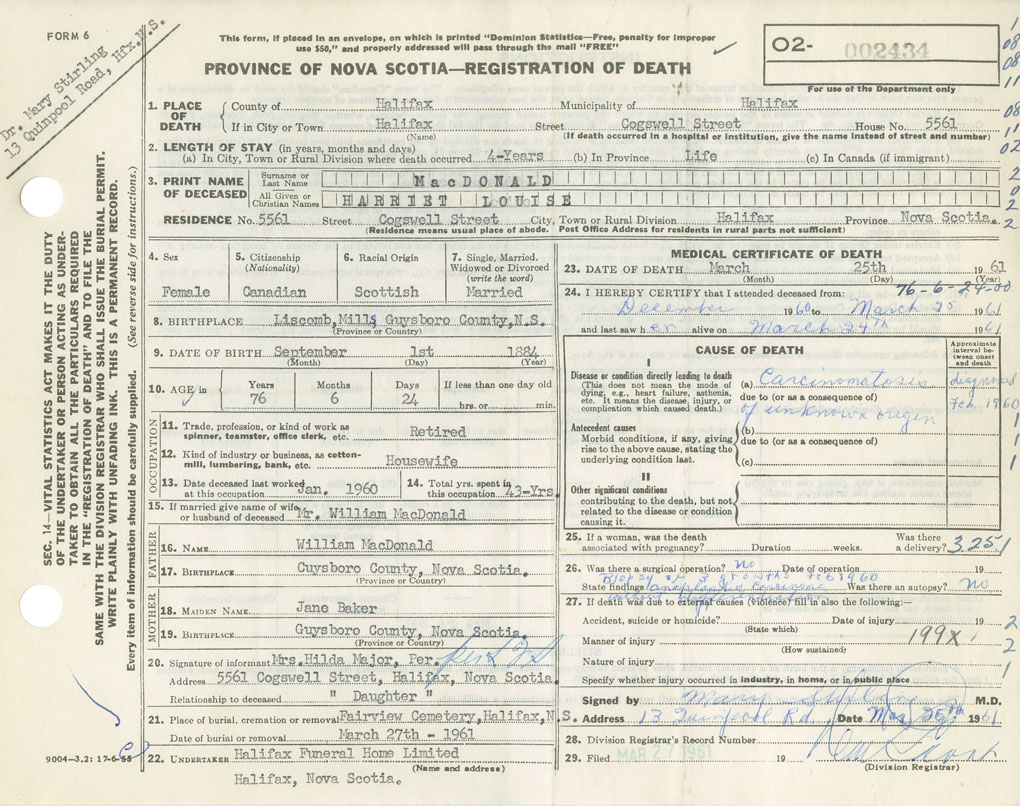 FORM 6
Dr. Mary Stirling
13 Quinpool Road, Hfx.N.S.
This form, if placed in an envelope, on which is printed "Dominion Statistics—Free, penalty for improper
use $50," and properly addressed will pass through the mail "FREE"
O2- 002434
For use of the Department only
PROVINCE OF NOVA SCOTIA—REGISTRATION OF DEATH
SEC. 14—VITAL STATISTICS ACT MAKES IT THE DUTY
OF THE UNDERTAKER OR PERSON ACTING AS UNDER-
TAKER TO OBTAIN ALL THE PARTICULARS REQUIRED
IN THE "REGISTRATION OF DEATH" AND TO FILE THE
SAME WITH THE DIVISION REGISTRAR WHO SHALL ISSUE THE BURIAL PERMIT.
WRITE PLAINLY WITH UNFADING INK. THIS IS A PERMANENT RECORD.
Every item of information should be carefully supplied. (See reverse side for instructions.)
1. PLACE OF DEATH County of Halifax Municipality of Halifax
If in City or Town Halifax Street Cogswell Street House No. 5561
(Name) (If death occurred in a hospital or institution, give the name instead of street and number)
2. LENGTH OF STAY (in years, months and days)
(a) In City, Town or Rural Division where death occurred 4-Years (b) In Province Life (c) In Canada (if immigrant)
3. PRINT NAME OF DECEASED Surname or Last Name MacDONALD
All Given or Christian Names HARRIET LOUISE
RESIDENCE No. 5561 Street Cogswell Street City, Town or Rural Division Halifax Province Nova Scotia.
(Residence means usual place of abode. Post Office Address for residents in rural parts not sufficient)
4. Sex 5. Citizenship (Nationality) 6. Racial Origin 7. Single, Married, Widowed or Divorced (write the word)
Female Canadian Scottish Married
8. BIRTHPLACE Liscomb, Mills Guysboro County, N.S.
(Province or Country)
9. DATE OF BIRTH September 1st 1884
(Month) (Day) (Year)
10. AGE in Years Months Days If less than one day old
76 6 24 hrs. or min.
OCCUPATION
11. Trade, profession, or kind of work as
spinner, teamster, office clerk, etc. Retired
12. Kind of industry or business, as cotton-
mill, lumbering, bank, etc. Housewife
13. Date deceased last worked at this occupation Jan. 1960 14. Total yrs. spent in this occupation 43-Yrs.
15. If married give name of wife
or husband of deceased Mr. William MacDonald
FATHER
16. NAME William MacDonald
17. BIRTHPLACE Guysboro County, Nova Scotia.
(Province or Country)
MOTHER
18. MAIDEN NAME Jane Baker
19. BIRTHPLACE Guysboro County, Nova Scotia.
(Province or Country)
20. Signature of informant Mrs. Hilda Major, Per.
Address 5561 Cogswell Street, Halifax, Nova Scotia.
Relationship to deceased " Daughter "
21. Place of burial, cremation or removal Fairview Cemetery, Halifax, N.S.
Date of burial or removal March 27th - 1961
22. UNDERTAKER Halifax Funeral Home Limited
(Name and address)
Halifax, Nova Scotia.
9004—3.2: 17-6-55
MEDICAL CERTIFICATE OF DEATH
23. DATE OF DEATH March 25th 1961
(Month) (Day) (Year)
76-6-24-00
24. I HEREBY CERTIFY that I attended deceased from:
December 1960 to March 25 1961
and last saw her alive on March 24th 1961
CAUSE OF DEATH
Approximate interval between onset and death
I
Disease or condition directly leading to death
(This does not mean the mode of dying, e.g., heart failure, asthenia, etc. It means the disease, injury, or complication which caused death.)
(a) Carcinomatosis
due to (or as a consequence of)
of unknown origin
diagnosed Feb. 1960
Antecedent causes
Morbid conditions, if any, giving rise to the above cause, stating the underlying condition last.
(b)
due to (or as a consequence of)
(c)
II
Other significant conditions
contributing to the death, but not related to the disease or condition causing it.
25. If a woman, was the death
associated with pregnancy? Duration weeks. Was there a delivery? 3251
26. Was there a surgical operation? no Date of operation 19
Biopsy of 3 growths Feb 1960
State findings anaplastic carcinoma Was there an autopsy? no
27. If death was due to external causes (violence) fill in also the following:—
Accident, suicide or homicide? Date of injury 19
(State which)
Manner of injury 199X
(How sustained)
Nature of injury
Specify whether injury occurred in industry, in home, or in public place
Signed by Mary Stirling M.D.
Address 13 Quinpool Rd. Date Mar 25th 1961
28. Division Registrar's Record Number
29. Filed MAR 27 1961 19
(Division Registrar)